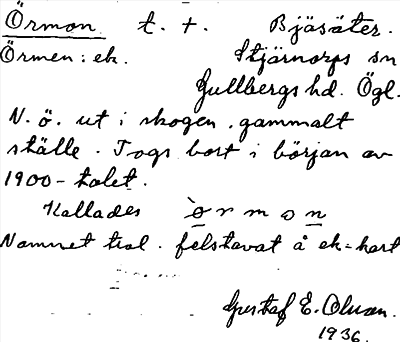 Örmon. t. +. Bjäsäter.
Örmen: ek. Stjärnorps sn
Gullbergs hd. Ögl.
N. ö. ut i skogen, gammalt
ställe. Togs bort i början av
1900-talet.
Kallades òrmon
Namnet trol. felstavat å ek-kart
Gustaf E. Olsson.
1936.